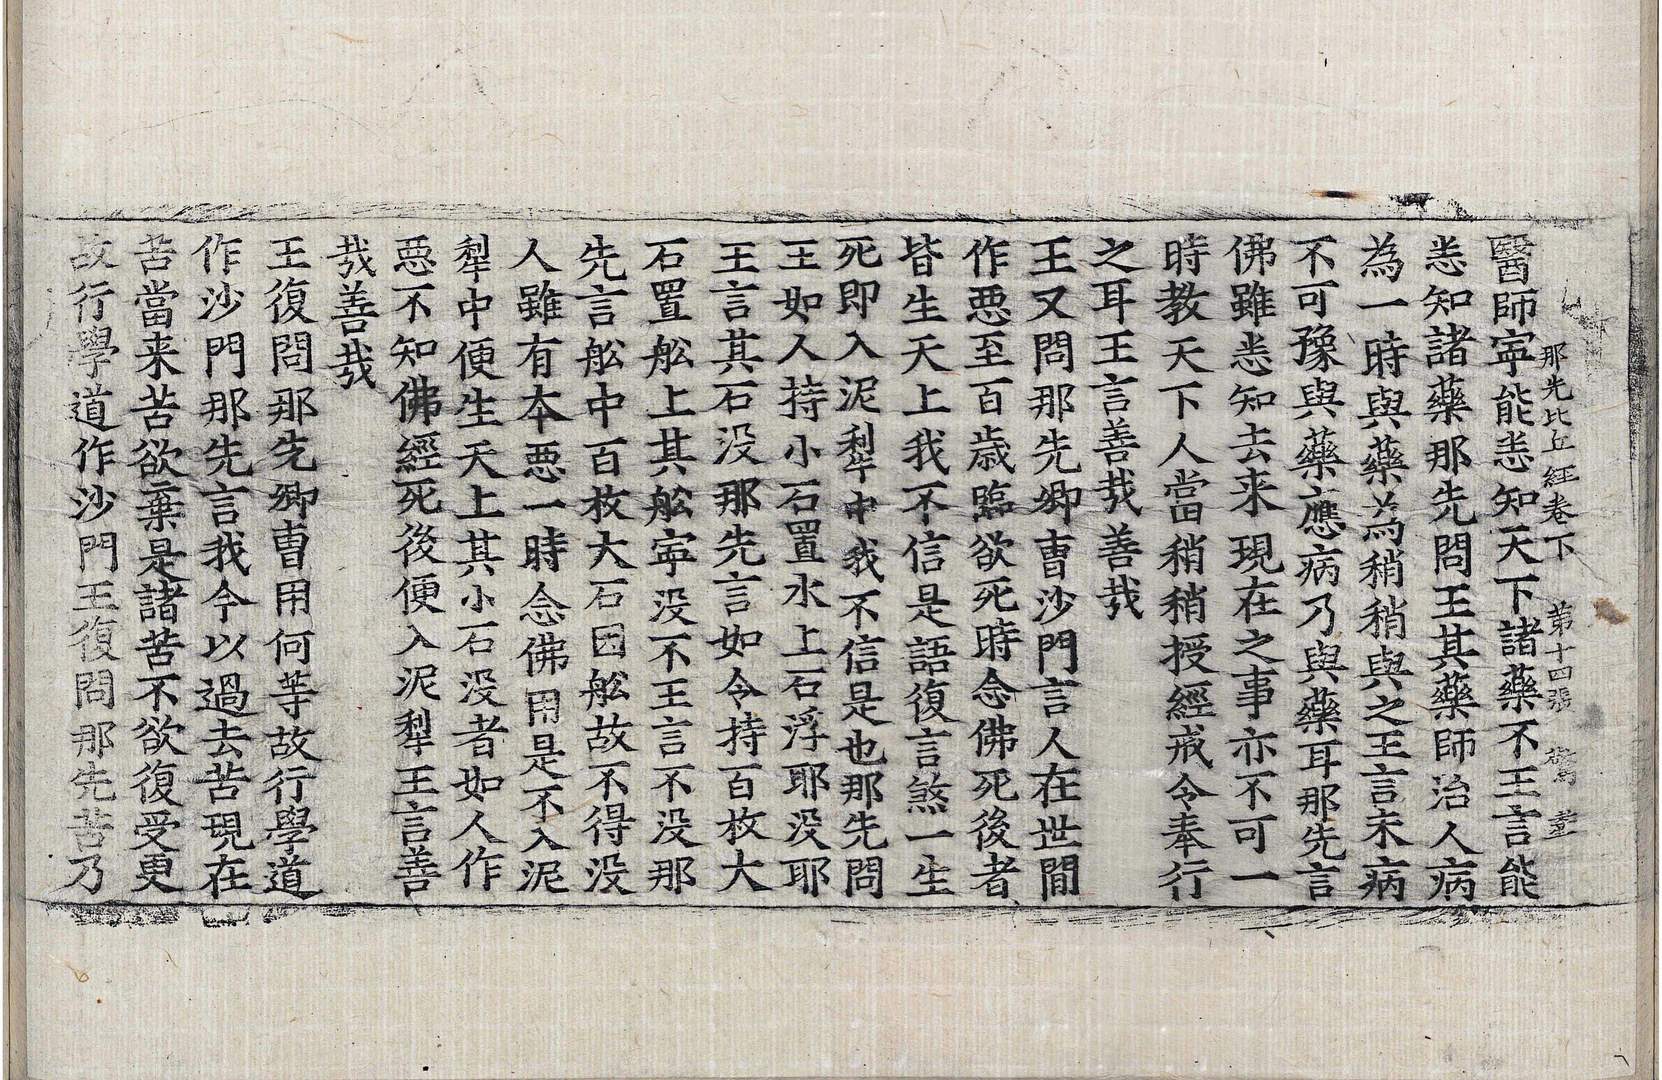 那先比丘經卷下 第十四張 驚
醫師寧能悉知天下諸藥不王言能
悉知諸藥那先問王其藥師治人病
為一時與藥為稍稍與之王言未病
不可豫與藥應病乃與藥耳那先言
佛雖悉知去来現在之事亦不可一
時教天下人當稍稍授經戒令奉行
之耳王言善㦲善㦲
王又問那先卿曹沙門言人在世間
作惡至百歲臨欲死時念佛死後者
皆生天上我不信是語復言煞一生
死即入泥犁中我不信是也那先問
王如人持小石置水上石浮耶没耶
王言其石没那先言如令持百枚大
石置舩上其舩寧没不王言不没那
先言舩中百枚大石因舩故不得没
人雖有本惡一時念佛用是不入泥
犁中便生天上其小石没者如人作
惡不知佛經死後便入泥犁王言善
㦲善㦲
王復問那先卿曹用何等故行學道
作沙門那先言我今以過去苦現在
苦當来苦欲棄是諸苦不欲復受更
故行學道作沙門王復問那先苦乃